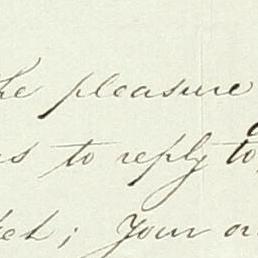 the pleasure
to reply to
; Your